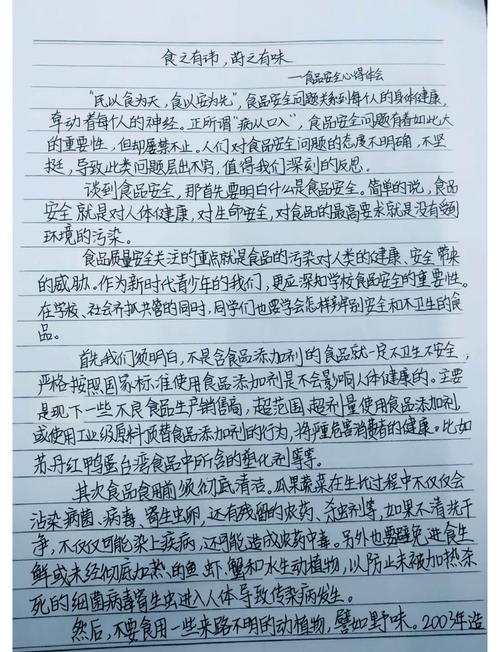 食之有讳，茴之有味
——食品安全心得体会
“民以食为天，食以安为先”，食品安全问题关系到每个人的身体健康，
牵动着每个人的神经。正所谓“病从口入”，食品安全问题有着如此大
的重要性，但却屡禁不止。人们对食品安全问题的态度不明确，不坚
挺，导致此类问题层出不穷，值得我们深刻的反思。
谈到食品安全，那首先要明白什么是食品安全。简单的说，食品
安全就是对人体健康，对生命安全，对食品的最高要求就是没有受到
环境的污染。
食品质量安全关注的重点就是食品的污染对人类的健康、安全带来
的威胁。作为新时代青少年的我们，更应深知学校食品安全的重要性。
在学校、社会齐抓共管的同时，同学们也要学会怎样辨别安全和不卫生的食
品。
首先我们须明白，不是含食品添加剂的食品就一定不卫生不安全，
严格按照国家标准使用食品添加剂是不会影响人体健康的。主要
是现下一些不良食品生产销售商，超范围、超剂量使用食品添加剂，
或使用工业级原料顶替食品添加剂的行为，将严重危害消费者的健康。比如
苏丹红鸭蛋台湾食品中所含的塑化剂等等。
其次食品食用前须彻底清洁。瓜果蔬菜在生长过程中不仅仅会
沾染病菌、病毒、寄生虫卵，还有残留的农药、杀虫剂等，如果不清洗干
净，不仅仅可能染上疾病，还可能造成农药中毒。另外也要避免进食生
鲜或未经彻底加热的鱼、虾、蟹和水生动植物，以防止未被加热杀
死的细菌病毒寄生虫进入人体导致传染病发生。
然后，不要食用一些来路不明的动植物，譬如野味。2003年造